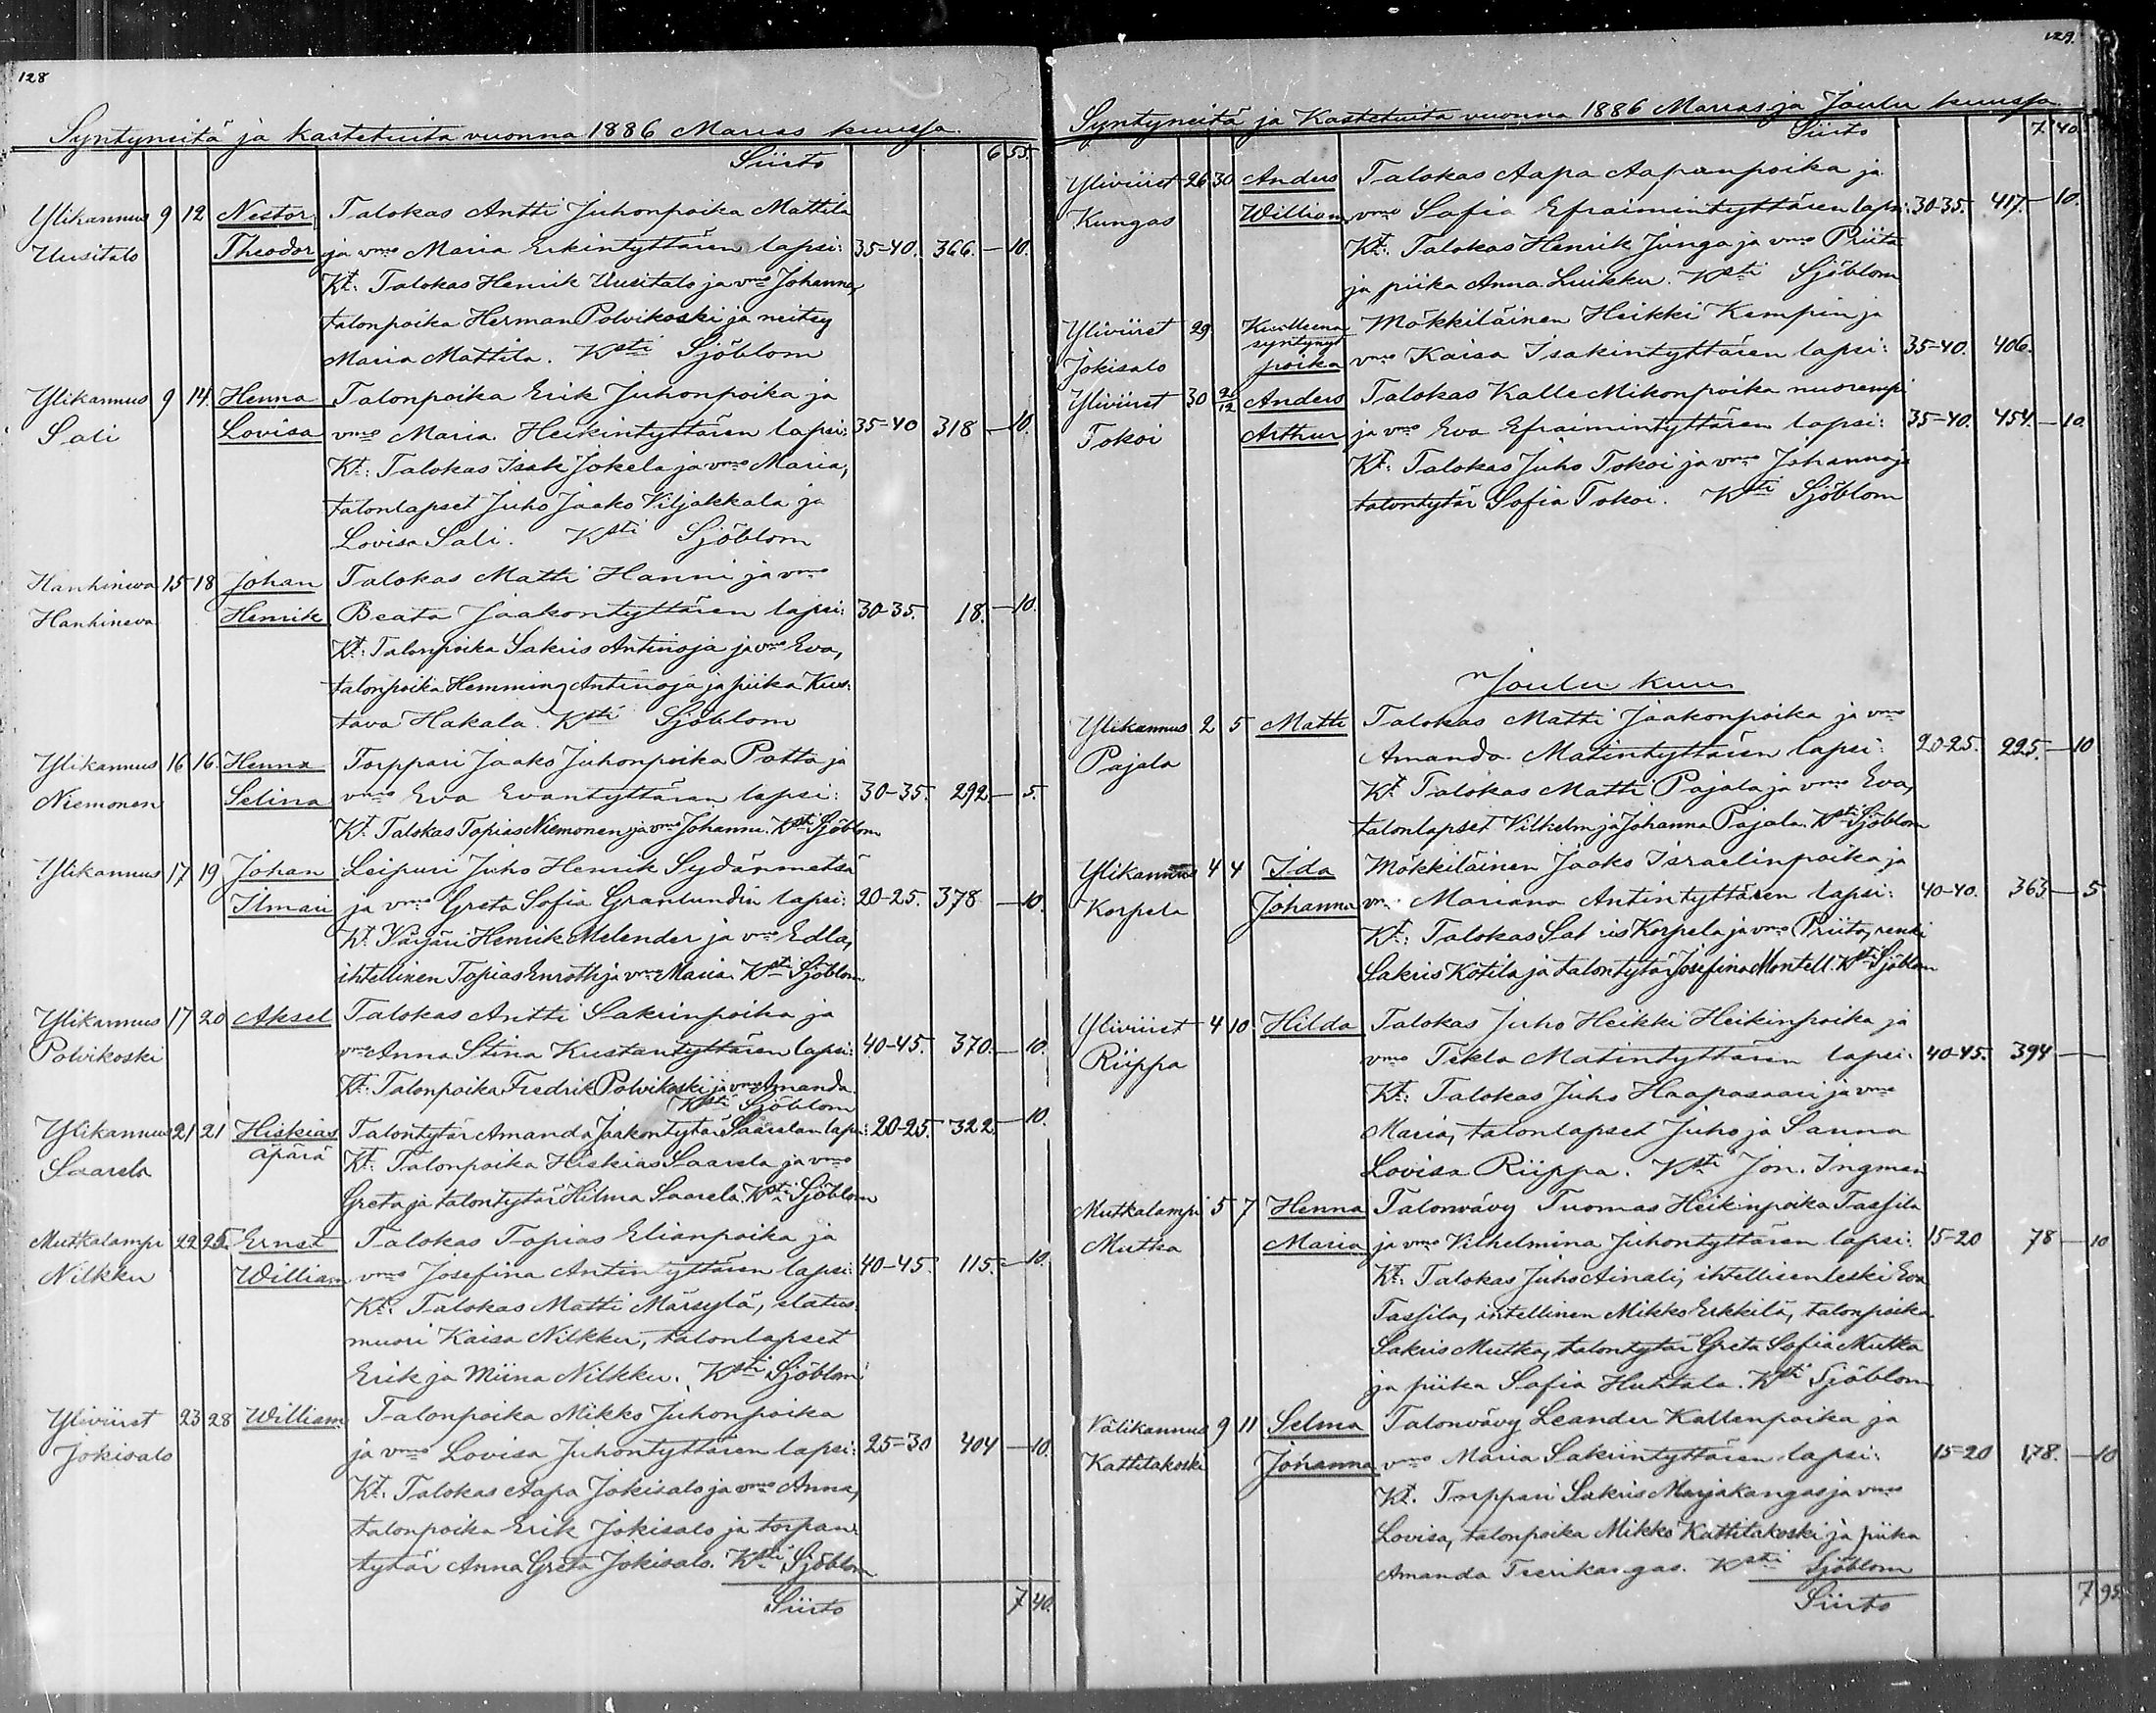 128
Syntyneitä ja kastetuita vuonna 1886 Marras kuussa.
Siirto 6 55.
Ylikannus 9 12 Nestor Talokas Antti Juhonpoika Mattila
Uusitalo Theodor ja vmo Maria Erkintyttären lapsi: 35-40. 366. — 10.
Kt: Talokas Henrik Uusitalo ja vmo Johanna,
talonpoika Herman Polvikoski ja neitsy
Maria Mattila. Ksti Sjöblom
Ylikannus 9 14. Henna Talonpoika Erik Juhonpoika ja
Sali Lovisa vmo Maria Heikintyttären lapsi: 35-40 318 — 10.
Kt: Talokas Isak Jokela ja vmo Maria,
talonlapset Juho Jaako Viljakkala ja
Lovisa Sali. Ksti Sjöblom
Hanhineva 15 18 Johan Talokas Matti Hanni ja vmo
Hanhineva Henrik Beata Jaakontyttären lapsi: 30-35. 18. — 10.
Kt: Talonpoika Sakris Antinoja ja vmo Eva,
talonpoika Hemming Antinoja ja piika Kus-
tava Hakala. Ksti Sjöblom
Ylikannus 16 16. Henna Torppari Jaako Juhonpoika Potta ja
Niemonen Selina vmo Eva Evantyttären lapsi: 30-35. 292 — 5.
Kt. Talokas Topias Niemonen ja vmo Johanna. Ksti Sjöblom
Ylikannus 17 19 Johan Leipuri Juho Henrik Sydänmetsä
Ilmari ja vmo Greta Sofia Granlundin lapsi: 20-25. 378 — 10.
Kt. Värjäri Henrik Melender ja vmo Edla,
ihtellinen Topias Enroth ja vmo Maria. Ksti Sjöblom.
Ylikannus 17 20 Aksel Talokas Antti Sakrinpoika ja
Polvikoski vmo Anna Stina Kustantyttären lapsi: 40-45. 370. — 10.
Kt: Talonpoika Fredrik Polvikoski ja vmo Amanda.
Ksti Sjöblom
Ylikannus 21 21 Hiskias Talontytär Amanda Jaakontytär Saarelan lapsi: 20-25. 322 — 10.
Saarela äpärä Kt: Talonpoika Hiskias Saarela ja vmo
Greta ja talontytär Hilma Saarela. Ksti Sjöblom
Mutkalampi 22 25. Ernst Talokas Topias Elianpoika ja
Nilkku William vmo Josefina Antintyttären lapsi: 40-45. 115. — 10.
Kt: Talokas Matti Märsylä, elatus-
muori Kaisa Nilkku, talonlapset
Erik ja Miina Nilkku. Ksti Sjöblom
Yliviiret 23 28 William Talonpoika Mikko Juhonpoika
Jokisalo ja vmo Lovisa Juhontyttären lapsi: 25-30 404 — 10.
Kt. Talokas Aapa Jokisalo ja vmo Anna,
talonpoika Erik Jokisalo ja torpan-
tytär Anna Greta Jokisalo. Ksti Sjöblom
Siirto 7 40.
129.
Syntyneitä ja Kastetuita vuonna 1886 Marras ja Joulu kuussa
Siirto 7. 40.
Yliviiret 26 30 Anders Talokas Aapa Aapanpoika ja
Kungas William vmo Sofia Efraimintyttären lapsi: 30-35. 417. — 10.
Kt: Talokas Henrik Junga ja vmo Priita
ja piika Anna Luikku. Ksti Sjöblom
Yliviiret 29 Kuolleena Mökkiläinen Heikki Kempin ja
syntynyt
Jokisalo poika vmo Kaisa Isakintyttären lapsi: 35-40. 406.
Yliviiret 30 Anders Talokas Kalle Mikonpoika nuorempi
Tokoi Arthur ja vmo Eva Efraimintyttären lapsi: 35-40. 454. — 10.
Kt: Talokas Juho Tokoi ja vmo Johanna ja
talontytär Sofia Tokoi. Ksti Sjöblom
Joulu kuu
Ylikannus 2 5 Matti Talokas Matti Jaakonpoika ja vmo
Pajala Amanda Matintyttären lapsi: 20-25. 225. — 10
Kt. Talokas Matti Pajala ja vmo Eva,
talonlapset Vilhelm ja Johanna Pajala. Ksti Sjöblom
Ylikannus 4 4 Ida Mökkiläinen Jaako Israelinpoika ja
Korpela Johanna vmo Mariana Antintyttären lapsi: 40-40. 363 — 5
Kt: Talokas Sakris Korpela ja vmo Priita, renki
Sakris Kotila ja talontytär Josefina Montell. Ksti Sjöblom
Yliviiret 4 10. Hilda Talokas Juho Heikki Heikinpoika ja
Riippa vmo Tekla Matintyttären lapsi: 40-45. 394 —
Kt: Talokas Juho Haapasaari ja vmo
Maria, talonlapset Juho ja Sanna
Lovisa Riippa. Ksti Jon. Ingman
Mutkalampi 5 7 Henna Talonvävy Tuomas Heikinpoika Tassila
Mutka Maria ja vmo Vilhelmina Juhontyttären lapsi: 15-20 78 — 10
Kt: Talokas Juho Ainali, ihtellisen leski Eva
Tassila, ihtellinen Mikko Erkkilä, talonpoika
Sakris Mutka, talontytär Greta Sofia Mutka
ja piika Sofia Huhtala. Ksti Sjöblom
Välikannus 9 11 Selma Talonvävy Leander Kallenpoika ja
Kattilakoski Johanna vmo Maria Sakrintyttären lapsi: 15-20 178. — 10
Kt. Torppari Sakris Marjakangas ja vmo
Lovisa, talonpoika Mikko Kattilakoski ja piika
Amanda Teerikangas. Ksti Sjöblom
Siirto 7 95.